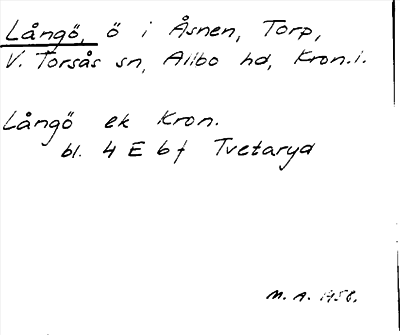 Långö, ö i Åsnen, Torp,
V. Torsås sn, Allbo hd, Kron.l.
Långö ek Kron.
bl. 4 E b f Tvetaryd
M. A. 1958.